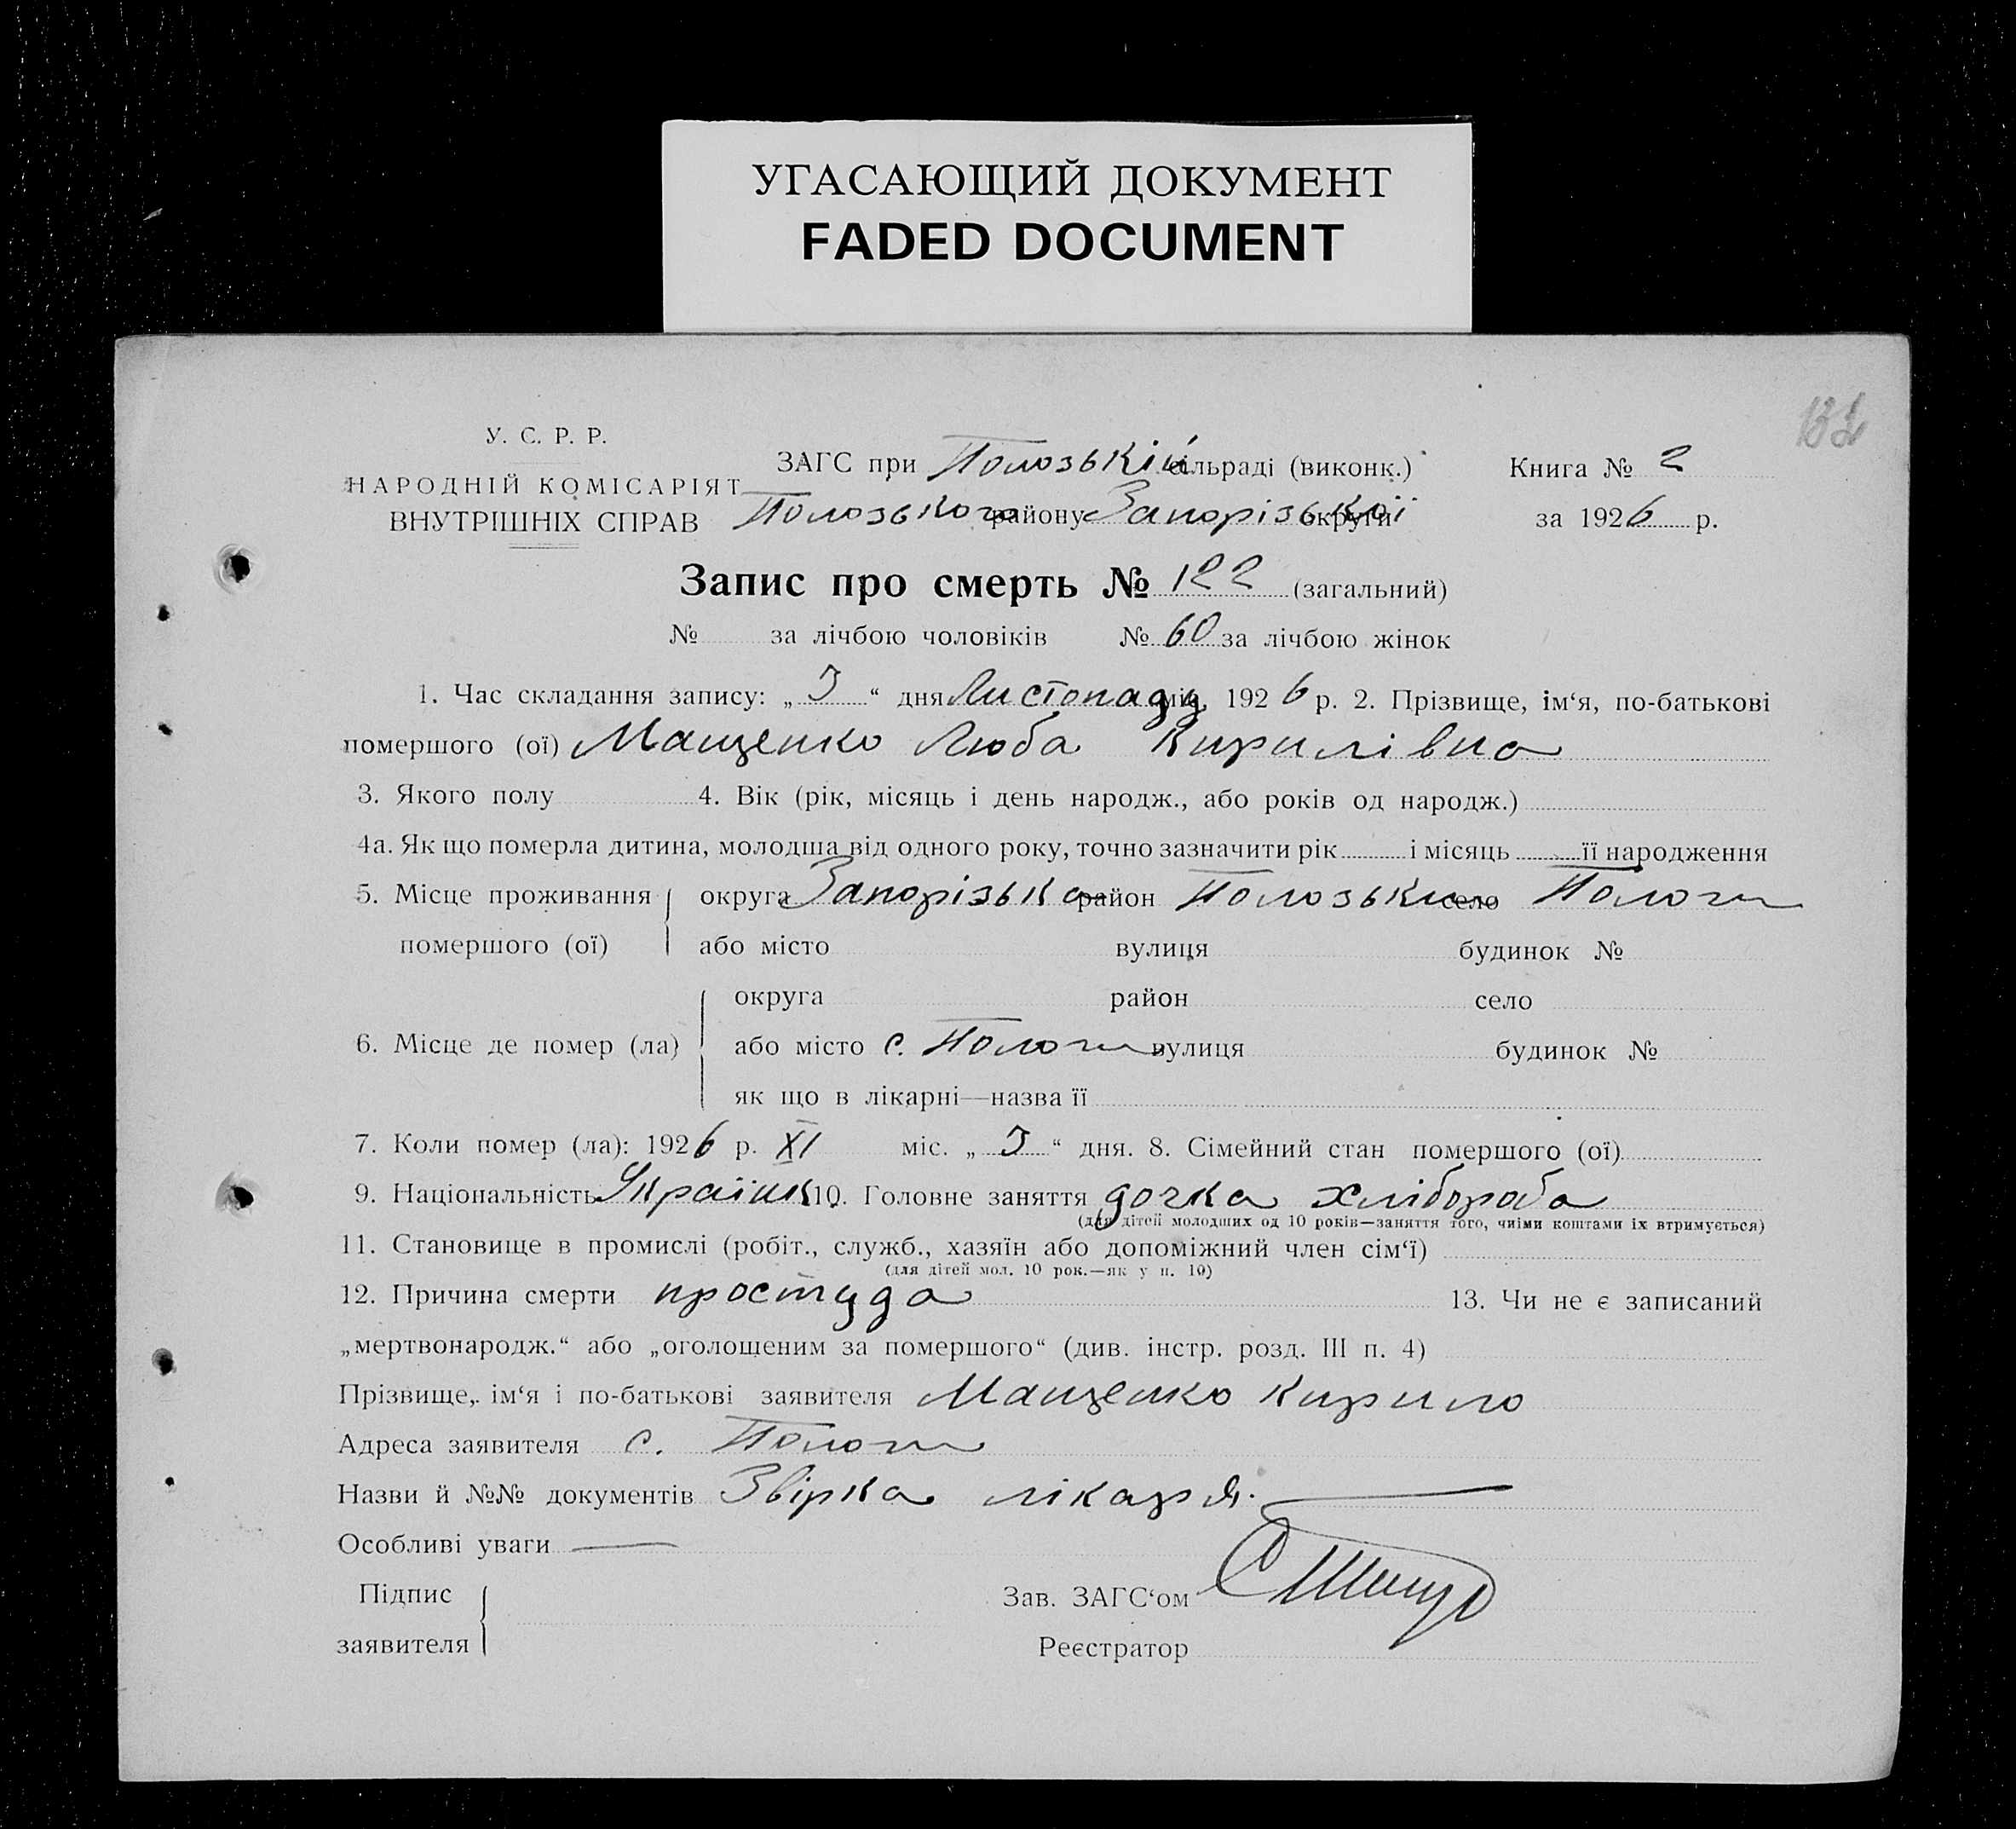 УГАСАЮЩИЙ ДОКУМЕНТ
FADED DOCUMENT
У. С. Р. Р.
НАРОДНІЙ КОМІСАРІЯТ
ВНУТРІШНІХ СПРАВ
ЗАГС при Полозькій сільраді (виконк.)
Полозького району Запорізької округи
Книга № 2
за 1926 р.
Запис про смерть № 122 (загальний)
№ за лічбою чоловіків № 60 за лічбою жінок
1. Час складання запису: „3“ дня Листопаду міс. 1926 р. 2. Прізвище, ім‘я, по-батькові
помершого (ої) Мащенко Люба Кирилівна
3. Якого полу 4. Вік (рік, місяць і день народж., або років од народж.)
4а. Як що померла дитина, молодша від одного року, точно зазначити рік і місяць її народження
5. Місце проживання округа Запорізька район Полозьки село Пологи
помершого (ої) або місто вулиця будинок №
округа район село
6. Місце де помер (ла) або місто с. Пологи вулиця будинок №
як що в лікарні—назва її
7. Коли помер (ла): 1926 р. XI міс. „3“ дня. 8. Сімейний стан помершого (ої)
9. Національність Українк 10. Головне заняття дочка хлібороба
(для дітей молодших од 10 років—заняття того, чиїми коштами їх втримується)
11. Становище в промислі (робіт., служб., хазяїн або допоміжний член сім‘ї)
(для дітей мол. 10 рок.—як у п. 10)
12. Причина смерти простуда 13. Чи не є записаний
„мертвонародж.“ або „оголошеним за помершого“ (див. інстр. розд. III п. 4)
Прізвище, ім‘я і по-батькові заявителя Мащенко Кирило
Адреса заявителя с. Пологи
Назви й №№ документів Звірка лікаря.
Особливі уваги —
Підпис
заявителя
Зав. ЗАГС‘ом
Реєстратор